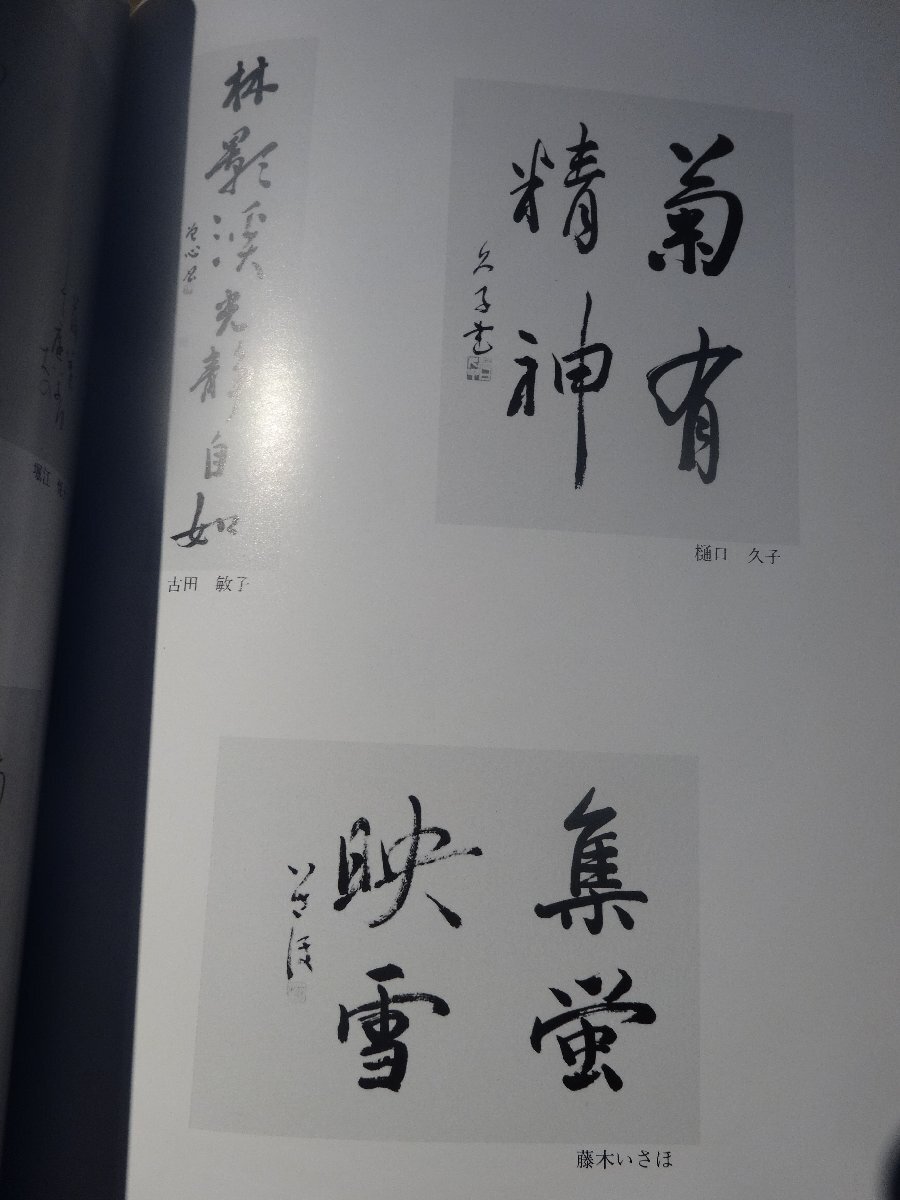 菊有
精神
久子書
樋口 久子
林影渓光静自如
古田 敏子
集蛍
映雪
いさほ
藤木いさほ
堀江